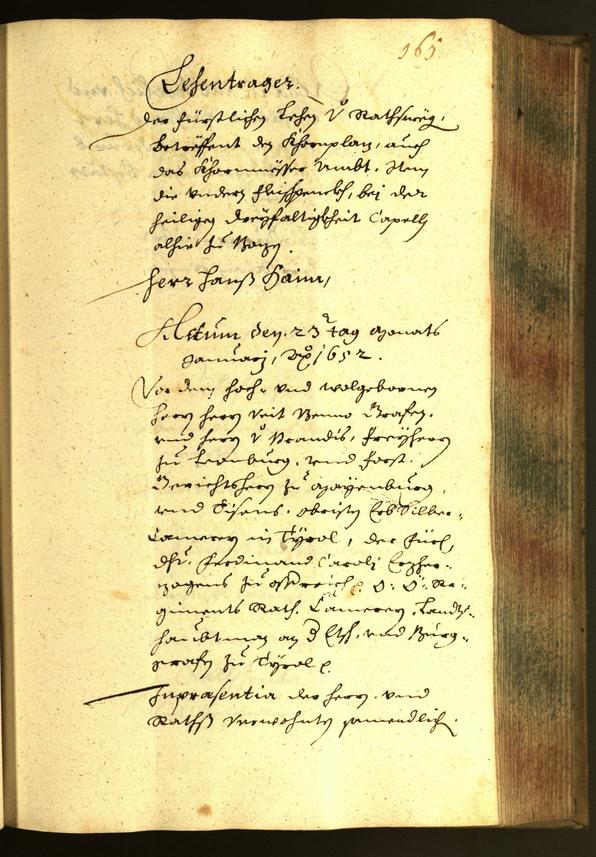 165
Lehentrager.
der fürstlichen Lehen V Rathswegen,
betreffent den Khornplaz, auch
das Khornmesser Ambt. Item
die undern fleischpenckh, bei der
heiligen dreyfaltigkheit Capelln
alhie zu Bozen.
Herr Hanß Haim,
Actum den 23 tag Monats
January, Ao 1652.
Vor dem hoch- und wolgebornen
herrn herrn Veit Benno Grafen,
und herrn V Brandis, Freyherrn
zu Leonburg, und Forst.
Gerichtsherrn zu Mayenburg,
und Tisens, obristen Erb Silber-
Camerern in Tyrol, der Fürstl.
Dhr. Ferdinand Carolj Erzher-
zogens zu Össtreich etc. O: Ö: Re-
giments Rath, Camerern, Landts-
haubtman an d Etsch, und Burg-
grafen zu Tyrol etc.
In praesentia der herrn und
Raths verwohnten samendlich.